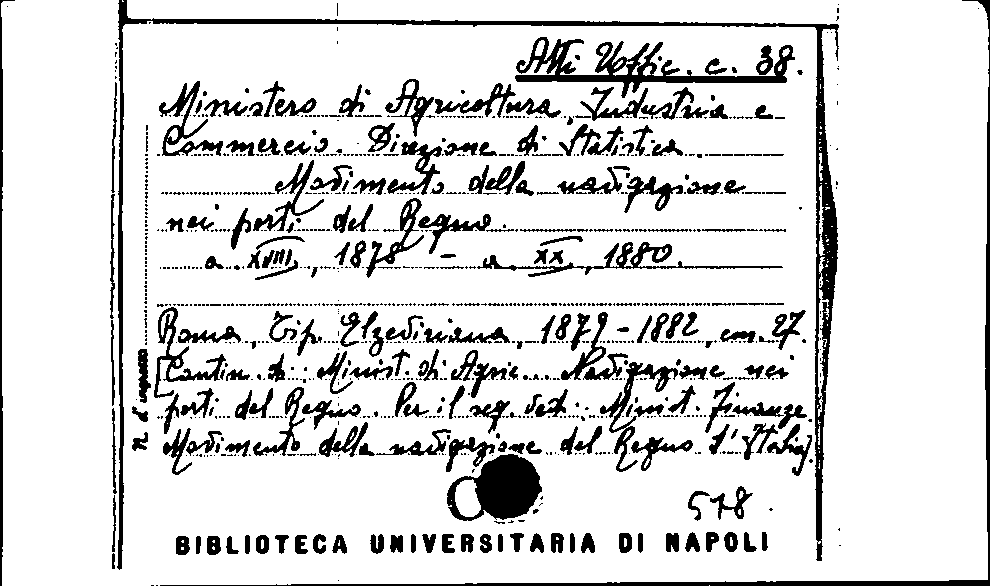 Atti Uffic. c. 38.
Ministero di Agricoltura, Industria e
Commercio. Direzione di Statistica.
Movimento della navigazione
nei porti del Regno.
a. XVIII, 1878 - a. XX, 1880.
Roma, Tip. Elzeviriana, 1879-1882, cm. 27.
[Contin. di: Minist. di Agric... Navigazione nei
porti del Regno. Per il seg. ved: Minist. Finanze.
Movimento della navigazione del Regno d'Italia].
N. d'ingresso
578.
BIBLIOTECA UNIVERSITARIA DI NAPOLI